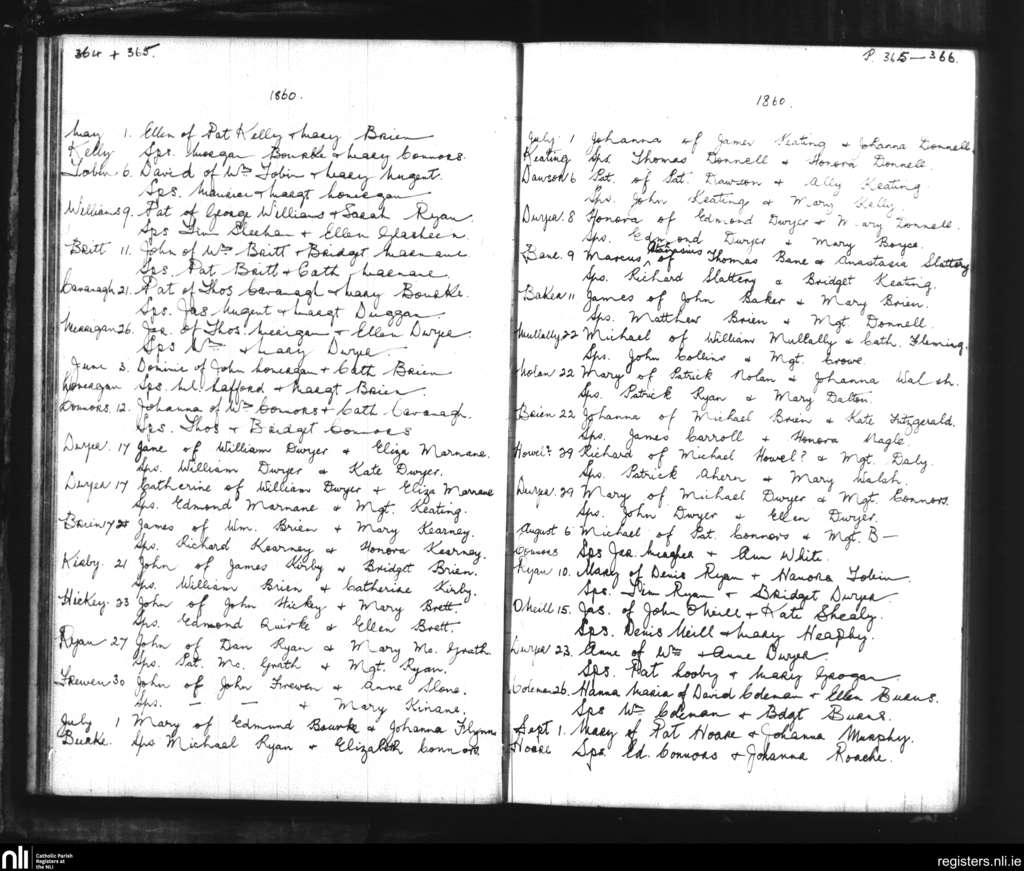 364 + 365.
1860.
May 1. Ellen of Pat Kelly & Mary Brien
Kelly Sps. Morgan Bourke & Mary Connors.
Tobin 6. David of Wm Tobin & Mary Nugent.
Sps. Maurice & Margt Lonergan
Williams 9. Pat of George Williams & Sarah Ryan.
Sps Tim Sheehan & Ellen Glasheen
Britt 11. John of Wm Britt & Bridget
Sps. Pat Britt & Cath
Cavanagh 21. Pat of Thos Cavanagh & Mary Bourke.
Sps. Jas Nugent & Margt Duggan
26. Jas. of Thos & Ellen Dwyer
Sps Wm & Mary Dwyer
June 3. Dominic of John Lonergan & Cath Brien
Lonergan Sps. & Margt Brien
Connors. 12. Johanna of Wm Connors & Cath Cavanagh.
Sps. Thos & Bridget Connors
Dwyer. 17 Jane of William Dwyer & Eliza Marnane.
Sps. William Dwyer & Kate Dwyer.
Dwyer 17 Catherine of William Dwyer & Eliza Marnane
Sps. Edmond Marnane & Mgt. Keating.
Brien James of Wm. Brien & Mary Kearney.
Sps. Richard Kearney & Honora Kearney.
Kirby. 21 John of James Kirby & Bridget Brien.
Sps. William Brien & Catherine Kirby.
Hickey. 23 John of John Hickey & Mary Brett.
Sps. Edmond Quirke & Ellen Brett.
Ryan 27 John of Dan Ryan & Mary Mc. Grath
Sps. Pat. Mc. Grath & Mgt. Ryan.
Frewen 30 John of John Frewen & Anne Slone.
Sps. — — & Mary Kinane.
July 1 Mary of Edmund Bourke & Johanna Flynn
Burke. Sps Michael Ryan & Elizabeth Connors
P. 365—366.
1860.
July 1 Johanna of James Keating & Johanna Donnell.
Keating Sps. Thomas Donnell & Honora Donnell.
Dawson 6 Pat. of Pat. Dawson & Ally Keating.
Sps. John Keating & Mary Kelly.
Dwyer. 8 Honora of Edmond Dwyer & Mary Donnell.
Sps. Edmond Dwyer & Mary Boyce.
Bane. 9 Marcus of Thomas Bane & Anastasia Slattery
Sps. Richard Slattery & Bridget Keating.
Baker 11 James of John Baker & Mary Brien.
Sps. Matthew Brien & Mgt. Donnell.
Mullally 22 Michael of William Mullally & Cath. Fleming.
Sps. John Collins & Mgt. Crowe.
Nolan 22 Mary of Patrick Nolan & Johanna Walsh.
Sps. Patrick Ryan & Mary Dalton.
Brien 22 Johanna of Michael Brien & Kate Fitzgerald.
Sps. James Carroll & Honora Nagle
Howel? 29 Richard of Michael Howel? & Mgt. Daly.
Sps. Patrick Ahern & Mary Walsh.
Dwyer. 29 Mary of Michael Dwyer & Mgt. Connors.
Sps. John Dwyer & Ellen Dwyer.
August 6 Michael of Pat. Connors & Mgt. B—
Connors Sps Jas. Meagher & Ann White.
Ryan 10. Mary of Denis Ryan & Hanora Tobin
Sps. Tim Ryan & Bridget Dwyer
O'Neill 15. Jas. of John O'Neill & Kate Shealy.
Sps. Denis Neill & Mary Heaphy.
Dwyer 23. Anne of Wm & Anne Dwyer.
Sps. Pat Looby & Mary Grogan.
Coleman 26. Hanna Maria of David Coleman & Ellen Burns.
Sps Wm Coleman & Bdgt Burns.
Sept 1. Mary of Pat Hoare & Johanna Murphy.
Hoare Sps. Ed. Connors & Johanna Roache.
nli
Catholic Parish
Registers at
the NLI
registers.nli.ie